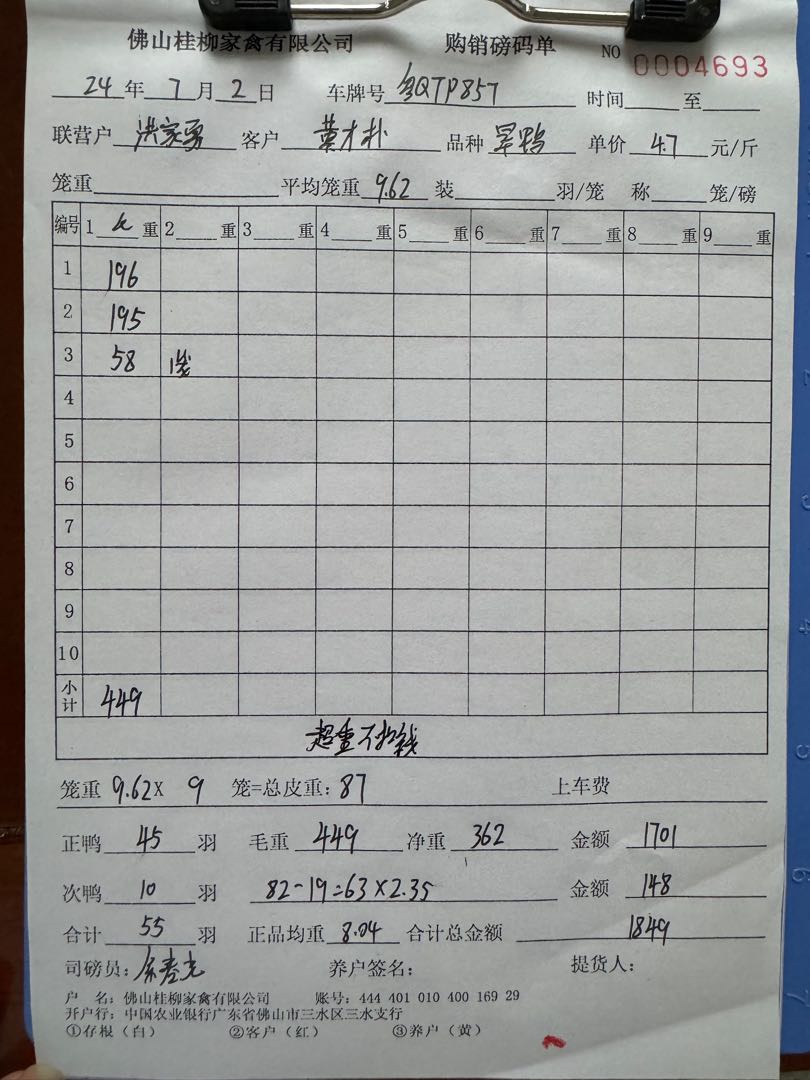 佛山桂柳家禽有限公司 购销磅码单 NO 0004693
24年7月2日 车牌号 粤QTP857 时间 至
联营户 洪家勇 客户 黄才朴 品种 旱鸭 单价 4.7 元/斤
笼重 平均笼重 9.62 装 羽/笼 称 笼/磅
编号 1 重 2 重 3 重 4 重 5 重 6 重 7 重 8 重 9 重
1 196
2 195
3 58
4
5
6
7
8
9
10
小计 449
超重不扣钱
笼重 9.62 X 9 笼=总皮重: 87 上车费
正鸭 45 羽 毛重 449 净重 362 金额 1701
次鸭 10 羽 82-19=63×2.35 金额 148
合计 55 羽 正品均重 8.04 合计总金额 1849
司磅员: 养户签名: 提货人:
户 名: 佛山桂柳家禽有限公司 账号: 444 401 010 400 169 29
开户行: 中国农业银行广东省佛山市三水区三水支行
①存根（白） ②客户（红） ③养户（黄）